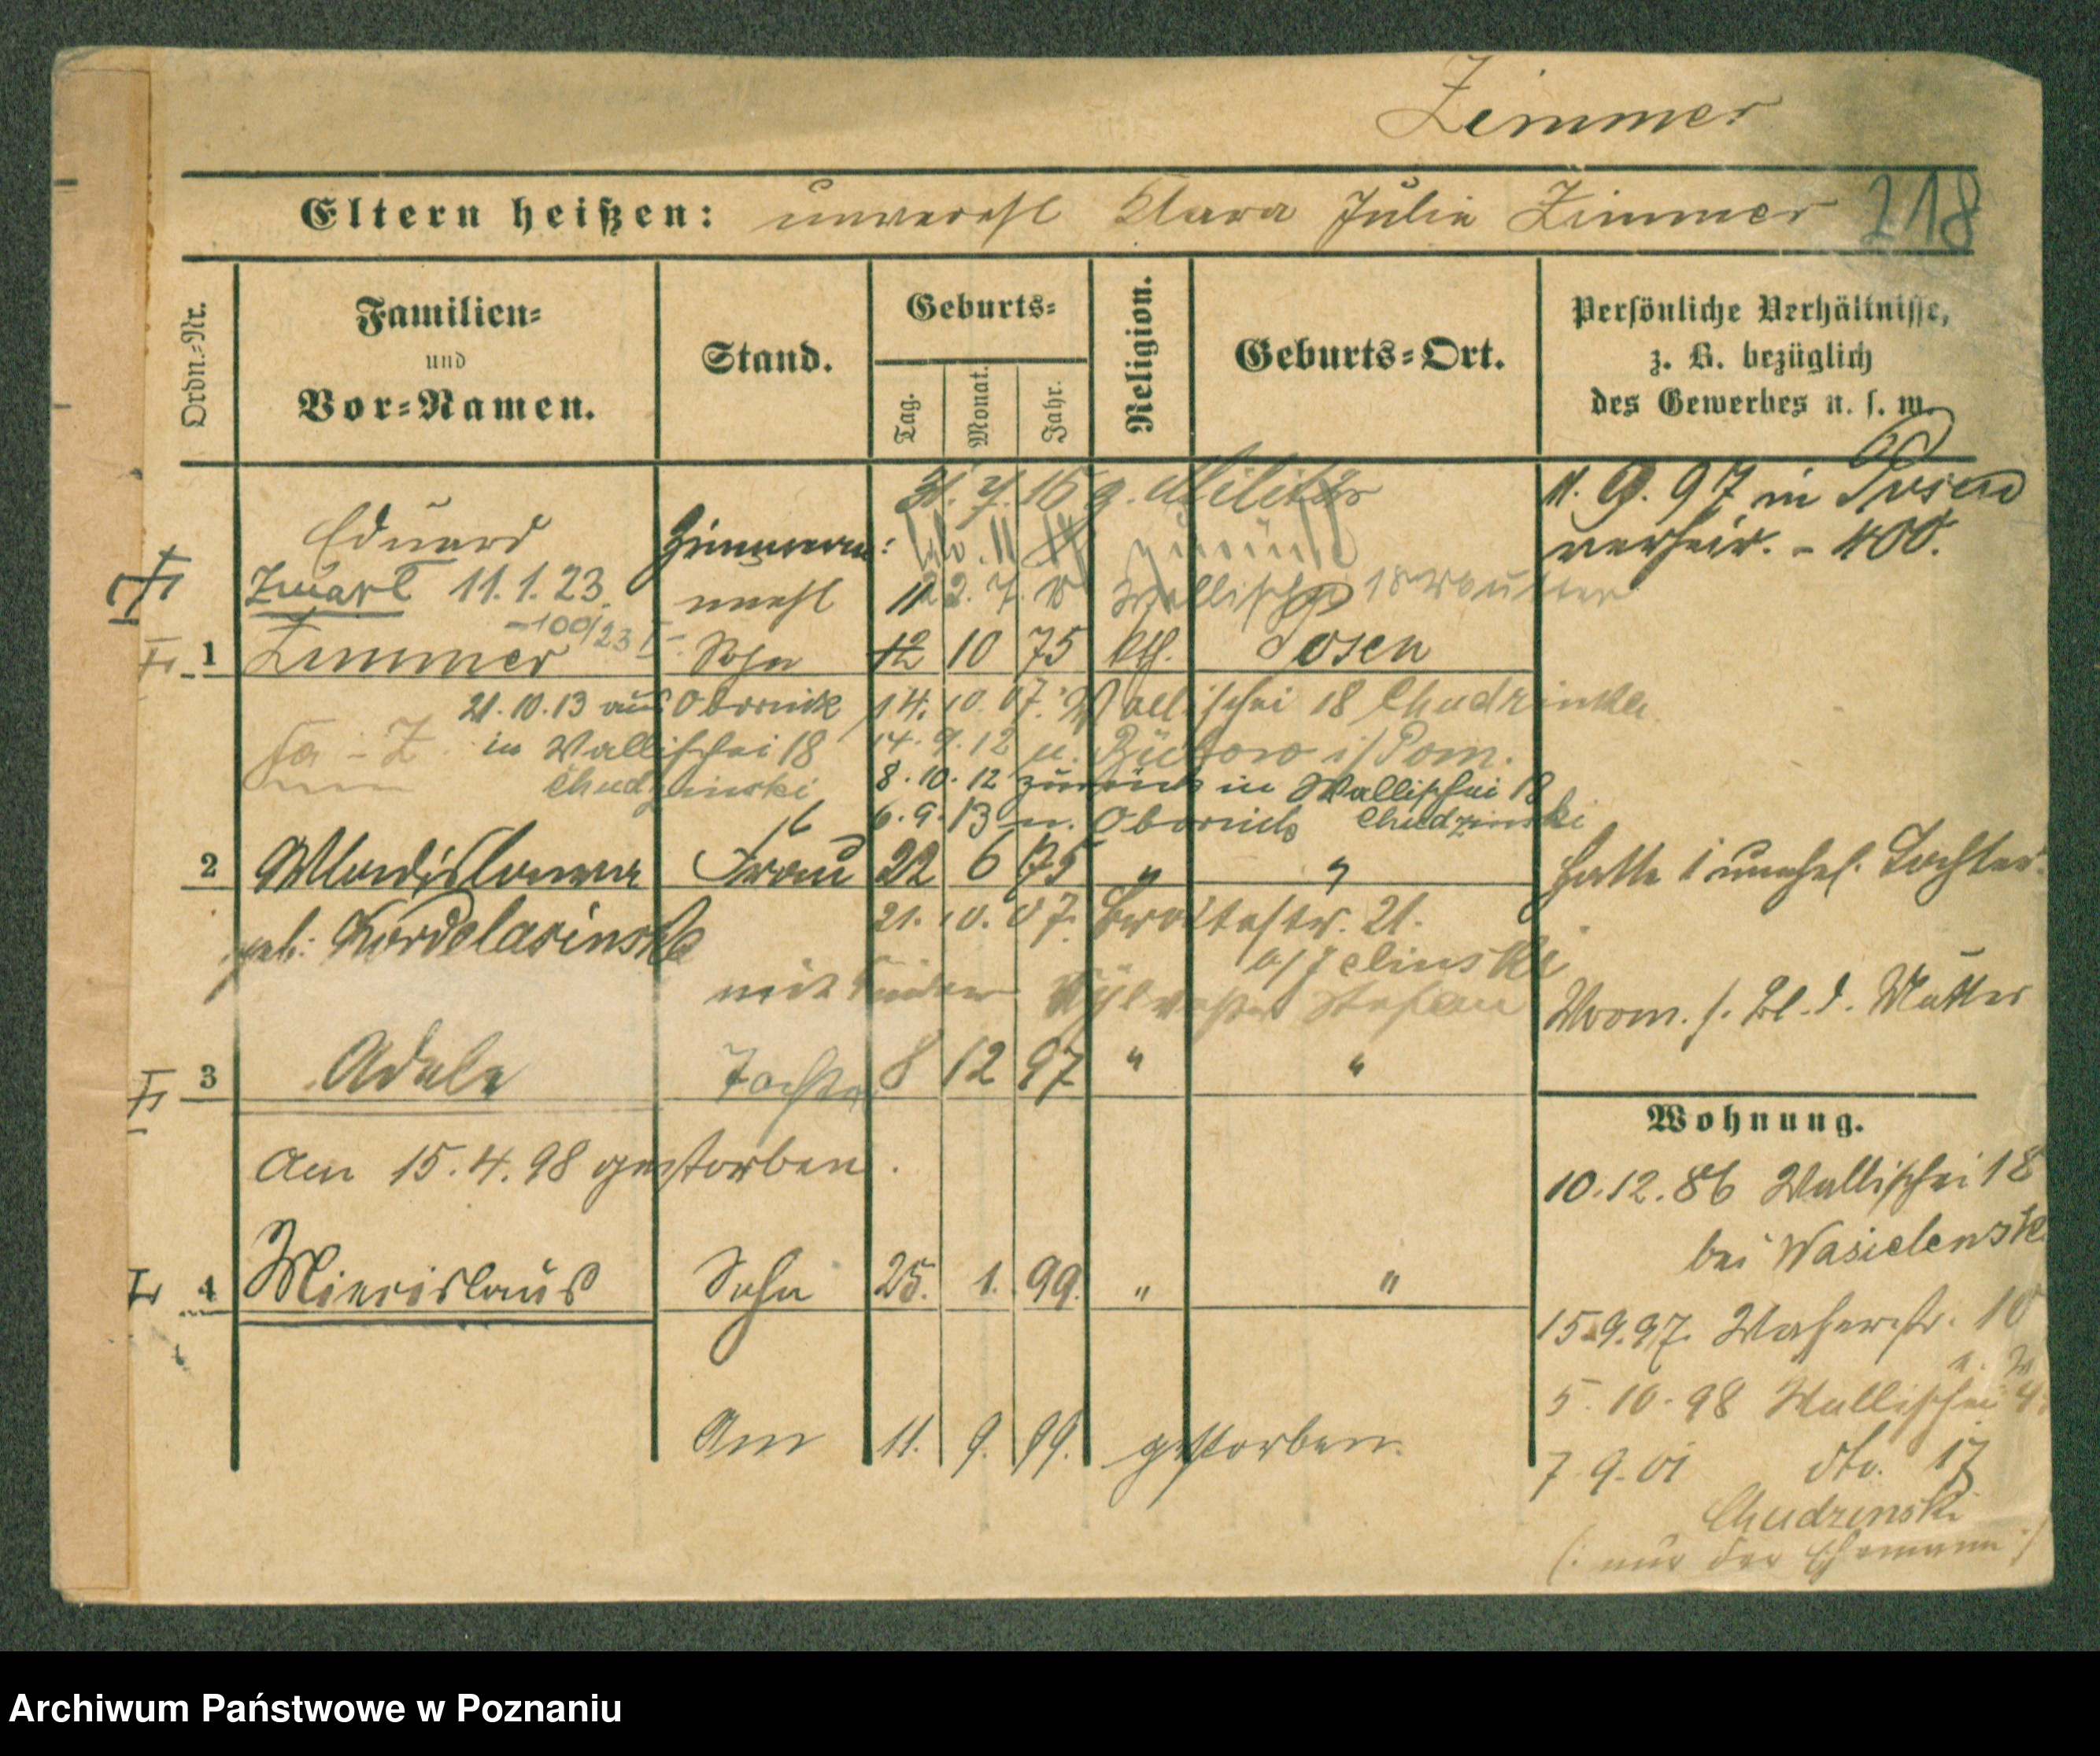 Zimmer
Eltern heißen: unverehl Klara Julie Zimmer 218
Ordn.-Nr.
Familien-
und
Vor-Namen.
Stand.
Geburts-
Tag. Monat. Jahr.
Religion.
Geburts-Ort.
Persönliche Verhältnisse,
z. B. bezüglich
des Gewerbes u. s. w.
31. 7. 15 z. Militär
11. 9. 97 in Posen
verheir. - 400.
Eduard Zimmerm:
zurück
Zwart 11.1.23. unehl
22. 7. 18 Wallischei 18 Mutter
-100/23 I
1 Zimmer Sohn 12 10 75 kth. Posen
21.10.13 aus Obornik 14. 10. 07. Wallischei 18 Chudzinska
in Wallischei 18 14. 9. 12 n. Bütow i/Pom.
Chudzinski 8. 10. 12 zurück in Wallischei 18
6. 9. 13 n. Obornik Chudzinski
2 Wladislawa Frau 22 6 75 " "
hatte 1 unehel. Tochter
geb: Kordelasinska 21. 10. 07. Breitestr. 21.
b/Jelinski
mit Kinder Sylvester Stefan
Vrom. s. Bl. d. Mutter
3 Adele Tochter 8 12 97 " "
Am 15.4.98 gestorben.
4 Miecislaus Sohn 25. 1. 99. " "
Am 11. 9. 99. gestorben.
Wohnung.
10.12.86 Wallischei 18
bei Wasielewsk
15.9.97. Wasserstr. 10
5. 10. 98 Wallischei
7 9. 01 dto. 17
Chudzinski
(: nur der Ehemann :)
Archiwum Państwowe w Poznaniu